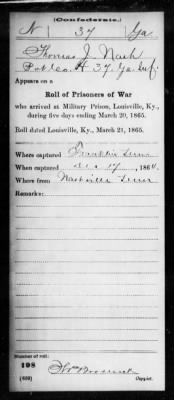 (Confederate.)
N 37 Ga
Thomas J. Nash
Pvt Co. A 37. Ga Inf.
Appears on a
Roll of Prisoners of War
who arrived at Military Prison, Louisville, Ky.,
during five days ending March 20, 1865.
Roll dated Louisville, Ky., March 21, 1865.
Where captured Franklin Tenn
When captured Dec 17, 1864.
Where from Nashville Tenn
Remarks:
Number of roll:
198
(639) Copyist.